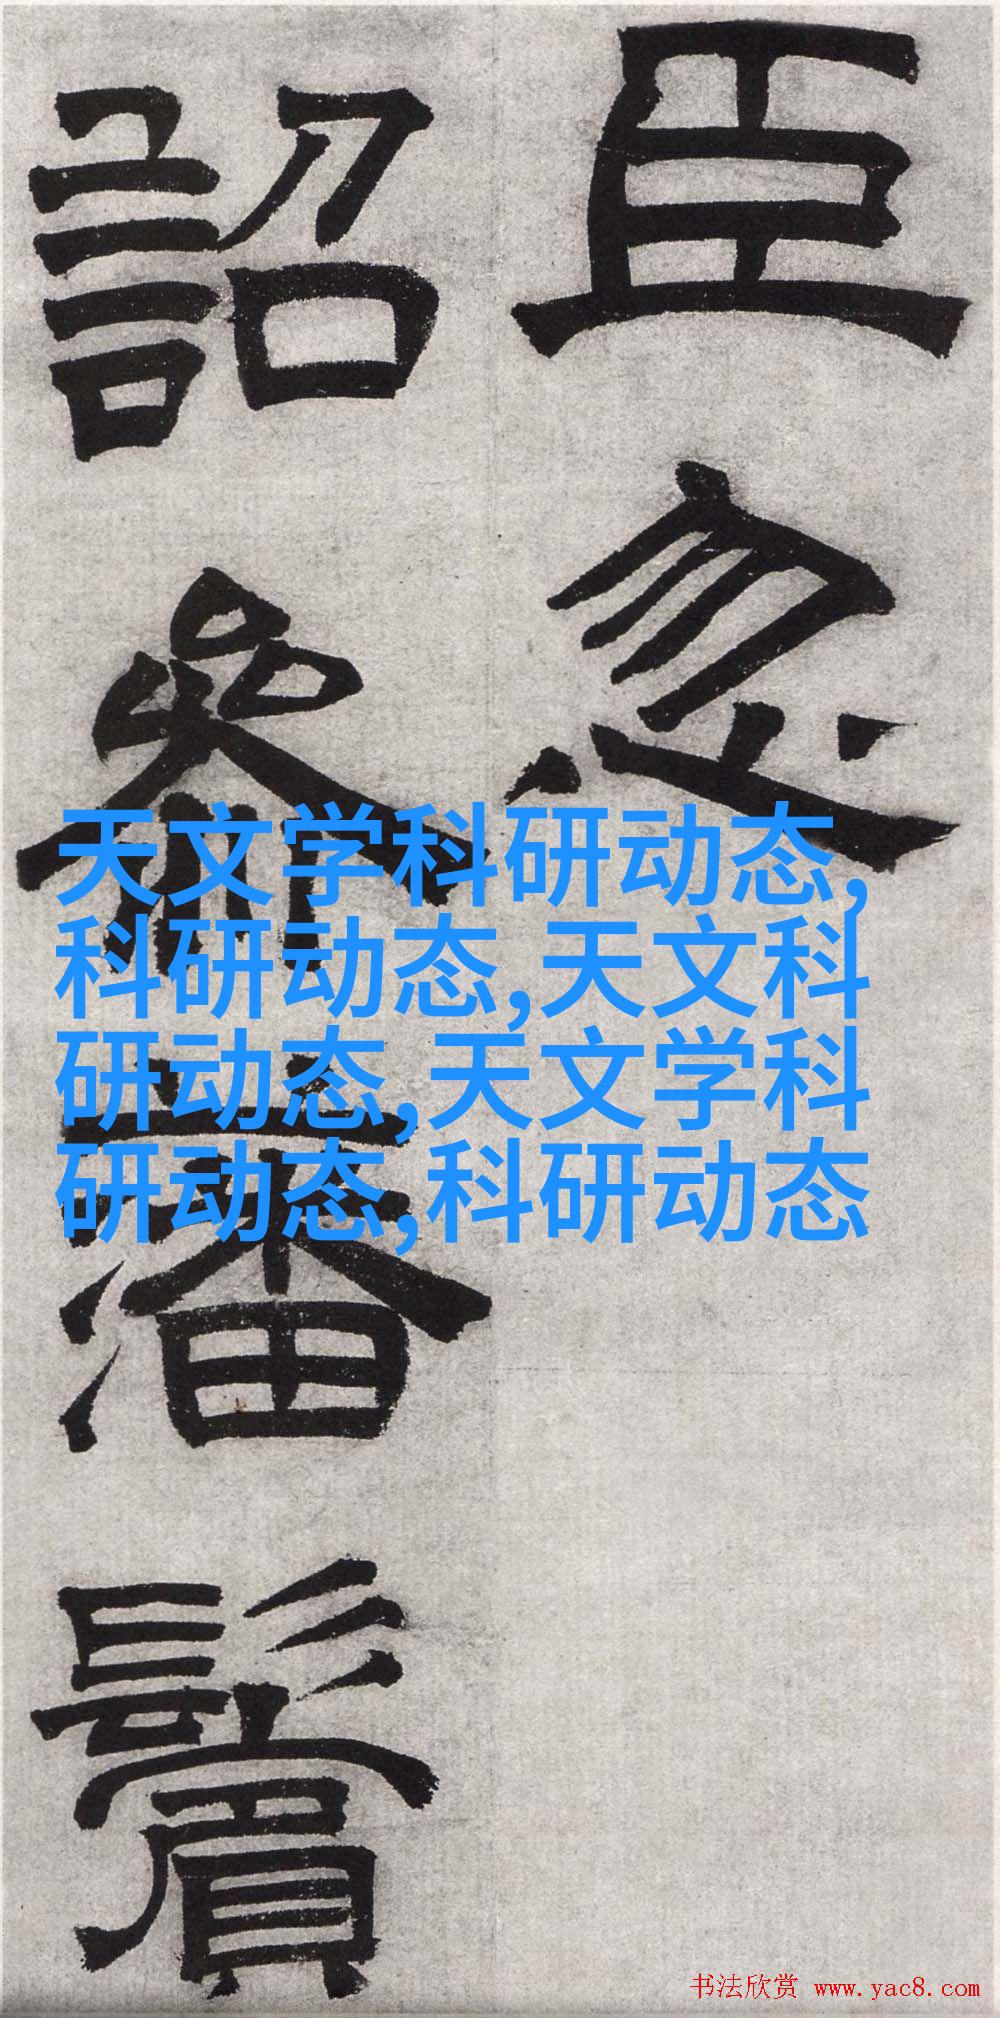 臣忽
詔參潘鬢
天文学科研动态,
科研动态,天文科
研动态,天文学科
研动态,科研动态
书法欣赏 www.yac8.com